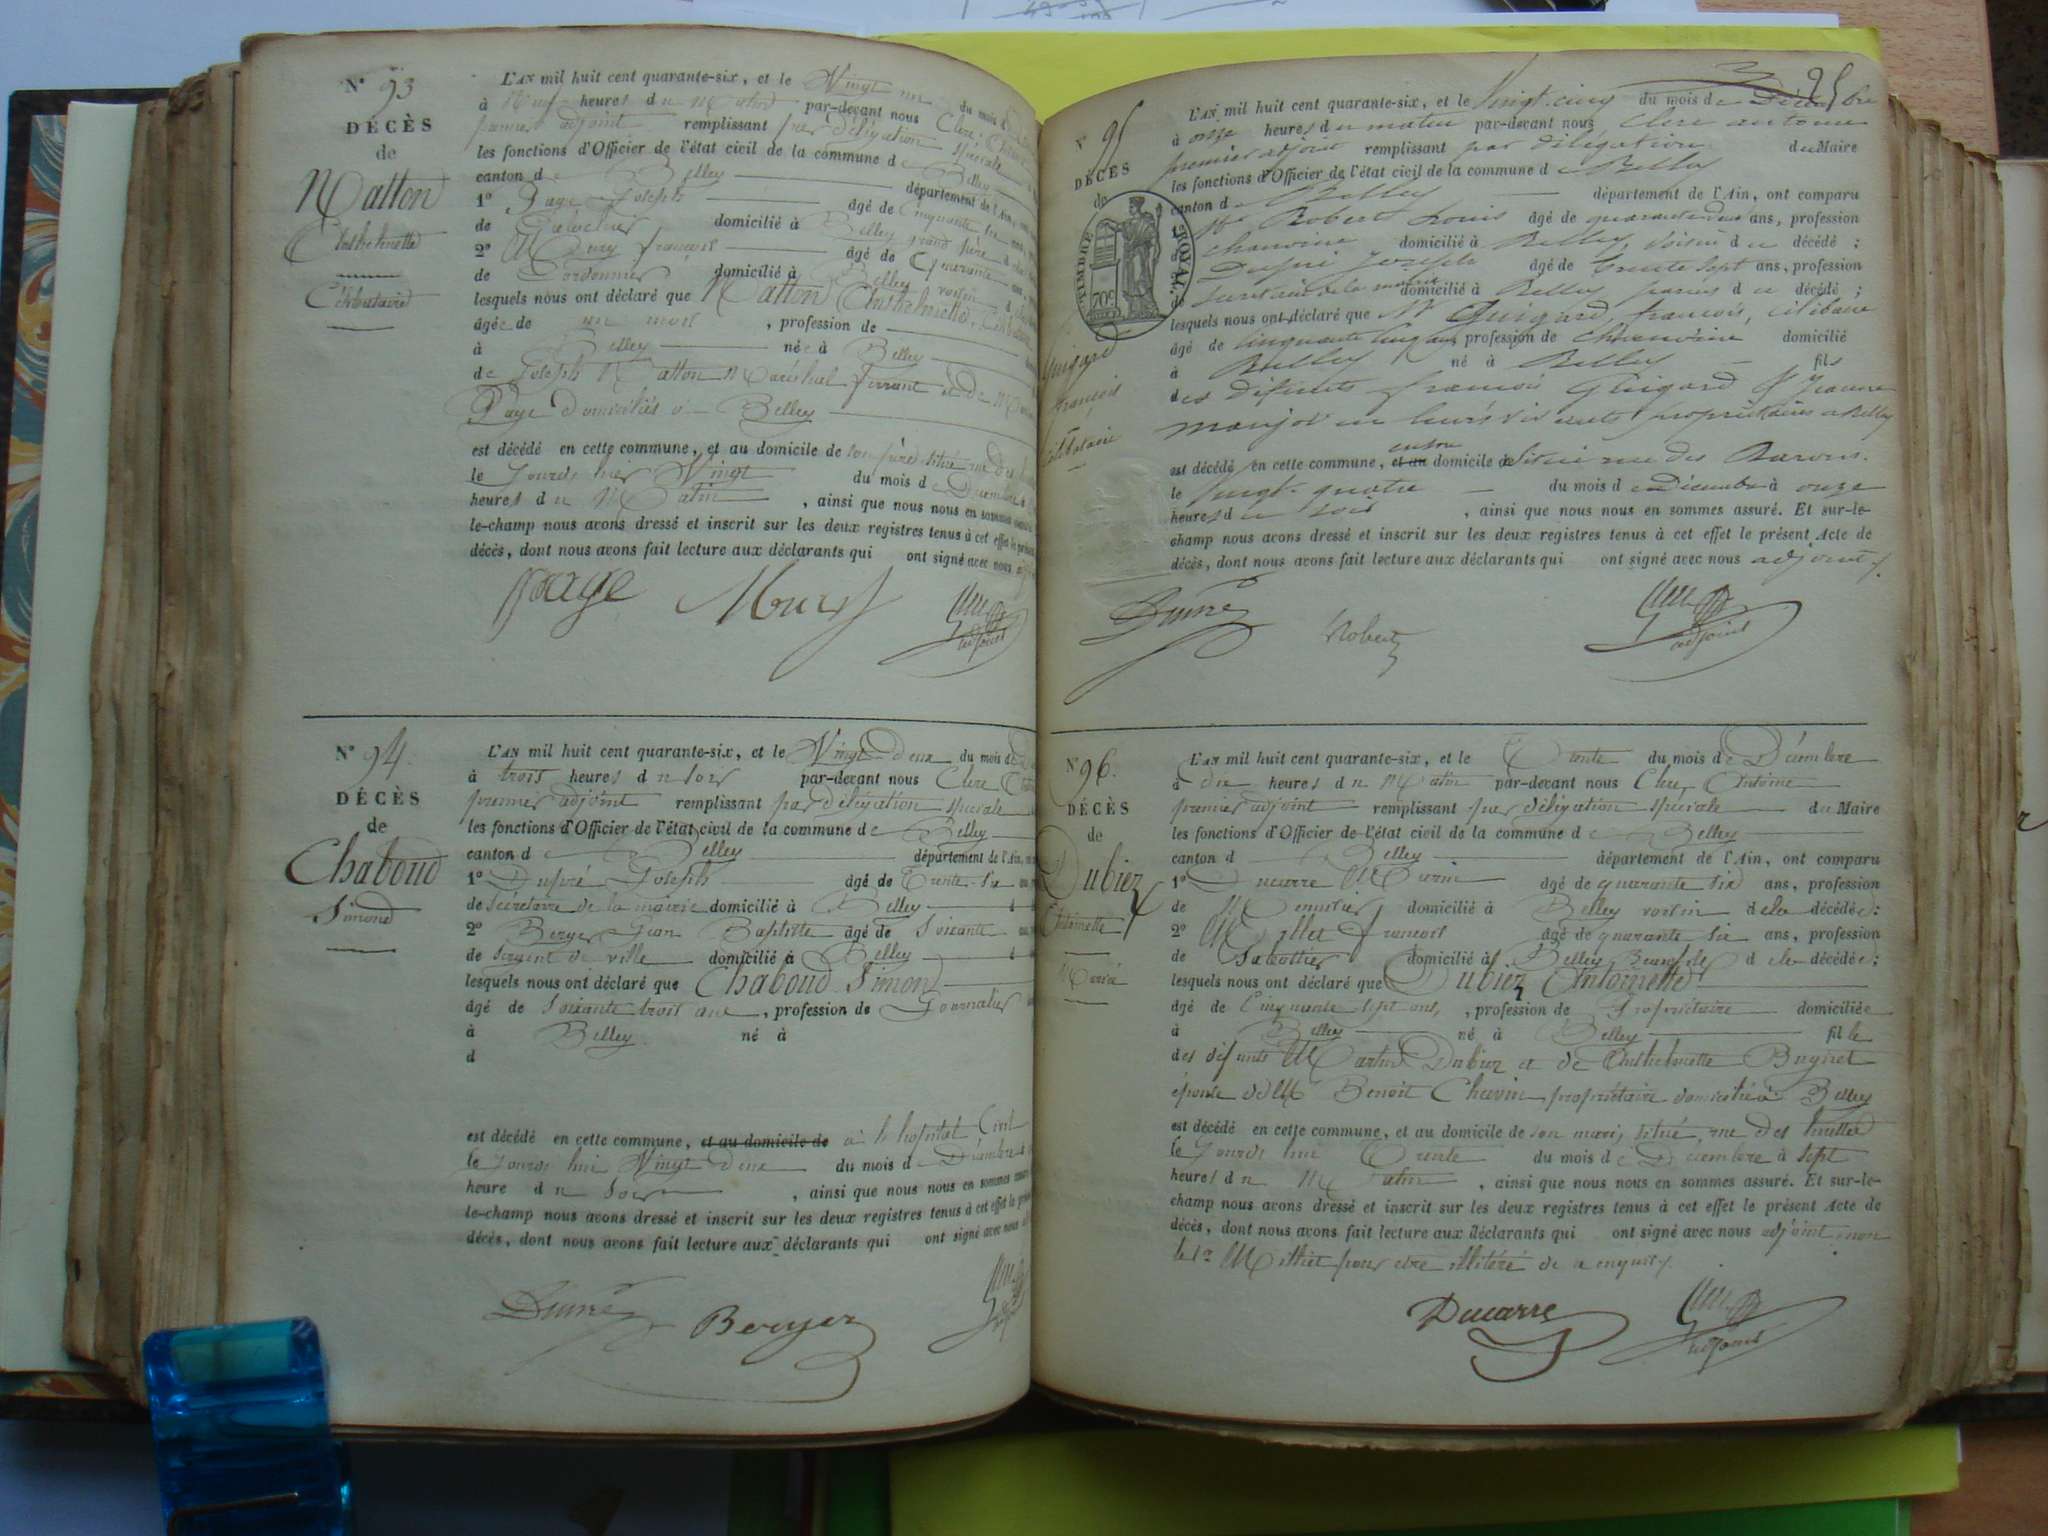 N° 93
DÉCÈS
de
Matton
Anthelmette
Célibataire
L'AN mil huit cent quarante-six, et le Vingt un du mois d
à heures du Matin par-devant nous Clerc
premier adjoint remplissant par délégation spéciale
les fonctions d'Officier de l'état civil de la commune de Belley
canton de Belley département de l'Ain,
1° Page Joseph âgé de Cinquante six
de domicilié à Belley grand père
2° Mury françois âgé de Quarante
de Cordonnier domicilié à Belley voisin
lesquels nous ont déclaré que Matton Anthelmette,
âgée de un mois, profession de
à Belley née à Belley
de Joseph Matton Maréchal ferrant et de
Page domiciliés à Belley
est décédé en cette commune, et au domicile de son père situé rue des
le Jourd'hier Vingt du mois de Décembre
heures du Matin, ainsi que nous nous en sommes
le-champ nous avons dressé et inscrit sur les deux registres tenus à cet effet le
décès, dont nous avons fait lecture aux déclarants qui ont signé avec nous
Page Mury
adjoint
N° 94.
DÉCÈS
de
Chaboud
Simond
L'AN mil huit cent quarante-six, et le Vingt-Deux du mois de
à trois heures du soir par-devant nous Clerc
premier adjoint remplissant par délégation spéciale
les fonctions d'Officier de l'état civil de la commune de Belley
canton de Belley département de l'Ain,
1° Dupré Joseph âgé de Trente-Six
de Sécrétaire de la mairie domicilié à Belley
2° Berger Jean Baptiste âgé de Soixante
de Sergent de ville domicilié à Belley
lesquels nous ont déclaré que Chaboud Simon
âgé de Soixante trois ans, profession de Journalier
à Belley né à
d
est décédé en cette commune, et au domicile de à l'hopital Civil
le Jourd'hui Vingt deux du mois de Décembre
heure du Soir, ainsi que nous nous en sommes
le-champ nous avons dressé et inscrit sur les deux registres tenus à cet effet le
décès, dont nous avons fait lecture aux déclarants qui ont signé avec nous
Dupré Berger
25
N° 95
DÉCÈS
de
TIMBRE ROYAL
70c
Guigard
françois
Célibataire
L'AN mil huit cent quarante-six, et le Vingt-cinq du mois de Décembre
à onze heures du matin par-devant nous Clerc antoine
premier adjoint remplissant par délégation du Maire
les fonctions d'Officier de l'état civil de la commune de Belley
canton de Belley département de l'Ain, ont comparu
Robert Louis âgé de ans, profession
chanoine domicilié à Belley, voisin du décédé;
Dupré Joseph âgé de trente sept ans, profession
secrétaire de la mairie domicilié à Belley du décédé;
lesquels nous ont déclaré que Mr Guigard, françois, célibaire
âgé de cinquante cinq ans, profession de Chanoine domicilié
à Belley né à Belley fils
des défunts françois Guigard & Jeanne
en leurs vivants propriétaires a Belley
est décédé en cette commune, et au domicile de situé rue des Barons.
le Vingt-quatre du mois de Décembre à onze
heures du soir, ainsi que nous nous en sommes assuré. Et sur-le-
champ nous avons dressé et inscrit sur les deux registres tenus à cet effet le présent Acte de
décès, dont nous avons fait lecture aux déclarants qui ont signé avec nous adjoint
Dupré Robert
adjoint
N° 96.
DÉCÈS
de
Dubiez
Antoinette
Mariée
L'AN mil huit cent quarante-six, et le Trente du mois de Décembre
à dix heures du Matin par-devant nous Clerc Antoine
premier adjoint remplissant par délégation spéciale du Maire
les fonctions d'Officier de l'état civil de la commune de Belley
canton d Belley département de l'Ain, ont comparu
1° Ducarre Marin âgé de quarante six ans, profession
de Menuisier domicilié à Belley voisin de la décédée:
2° Millet françois âgé de quarante six ans, profession
de Sabottier domicilié à Belley de la décédée;
lesquels nous ont déclaré que Dubiez Antoinette
âgé de Cinquante sept ans, profession de Propriétaire domiciliée
à Belley né à Belley fille
des défunts Martin Dubiez et de Anthelmette Bugnet
épouse de M Benoit Chavin propriétaire domicilié à Belley
est décédé en cette commune, et au domicile de son mari, situé, rue des
le Jourd'hui Trente du mois de Décembre à Sept
heures du Matin, ainsi que nous nous en sommes assuré. Et sur-le-
champ nous avons dressé et inscrit sur les deux registres tenus à cet effet le présent Acte de
décès, dont nous avons fait lecture aux déclarants qui ont signé avec nous adjoint, non
le Sr Milliet pour etre illitéré de ce enquis
Ducarre
adjoint